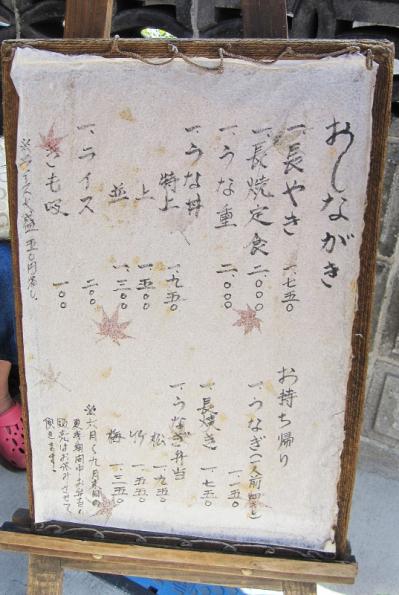 おしながき
一、長やき 一、七五〇
一、長焼定食 二、〇〇〇
一、うな重 二、〇〇〇
一、うな丼
特上 一、九五〇
上 一、五〇〇
並 一、三〇〇
一、ライス 二〇〇
きも吸 一〇〇
お持ち帰り
一、うなぎ(一人前四き) 一、一五〇
一、長焼き 一、七五〇
一、うなぎ弁当
松 一、九五〇
竹 一、五五〇
梅 一、三五〇
※六月〜九月末日の
夏季期間中お弁当の
販売はお休みさせて
頂きます。